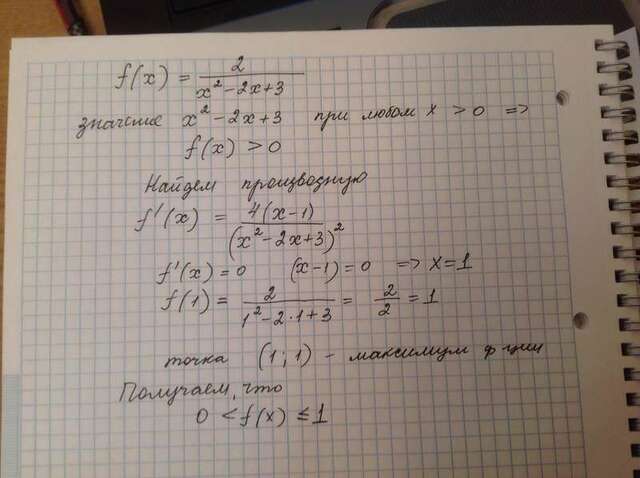 f(x) = 2/(x² - 2x + 3)
значение x² - 2x + 3 при любом x > 0 =>
f(x) > 0
Найдем производную
f'(x) = 4(x-1)/(x² - 2x + 3)²
f'(x) = 0 (x-1) = 0 => x = 1
f(1) = 2/(1² - 2·1 + 3) = 2/2 = 1
точка (1; 1) - максимум ф-ции
Получаем, что
0 < f(x) ≤ 1